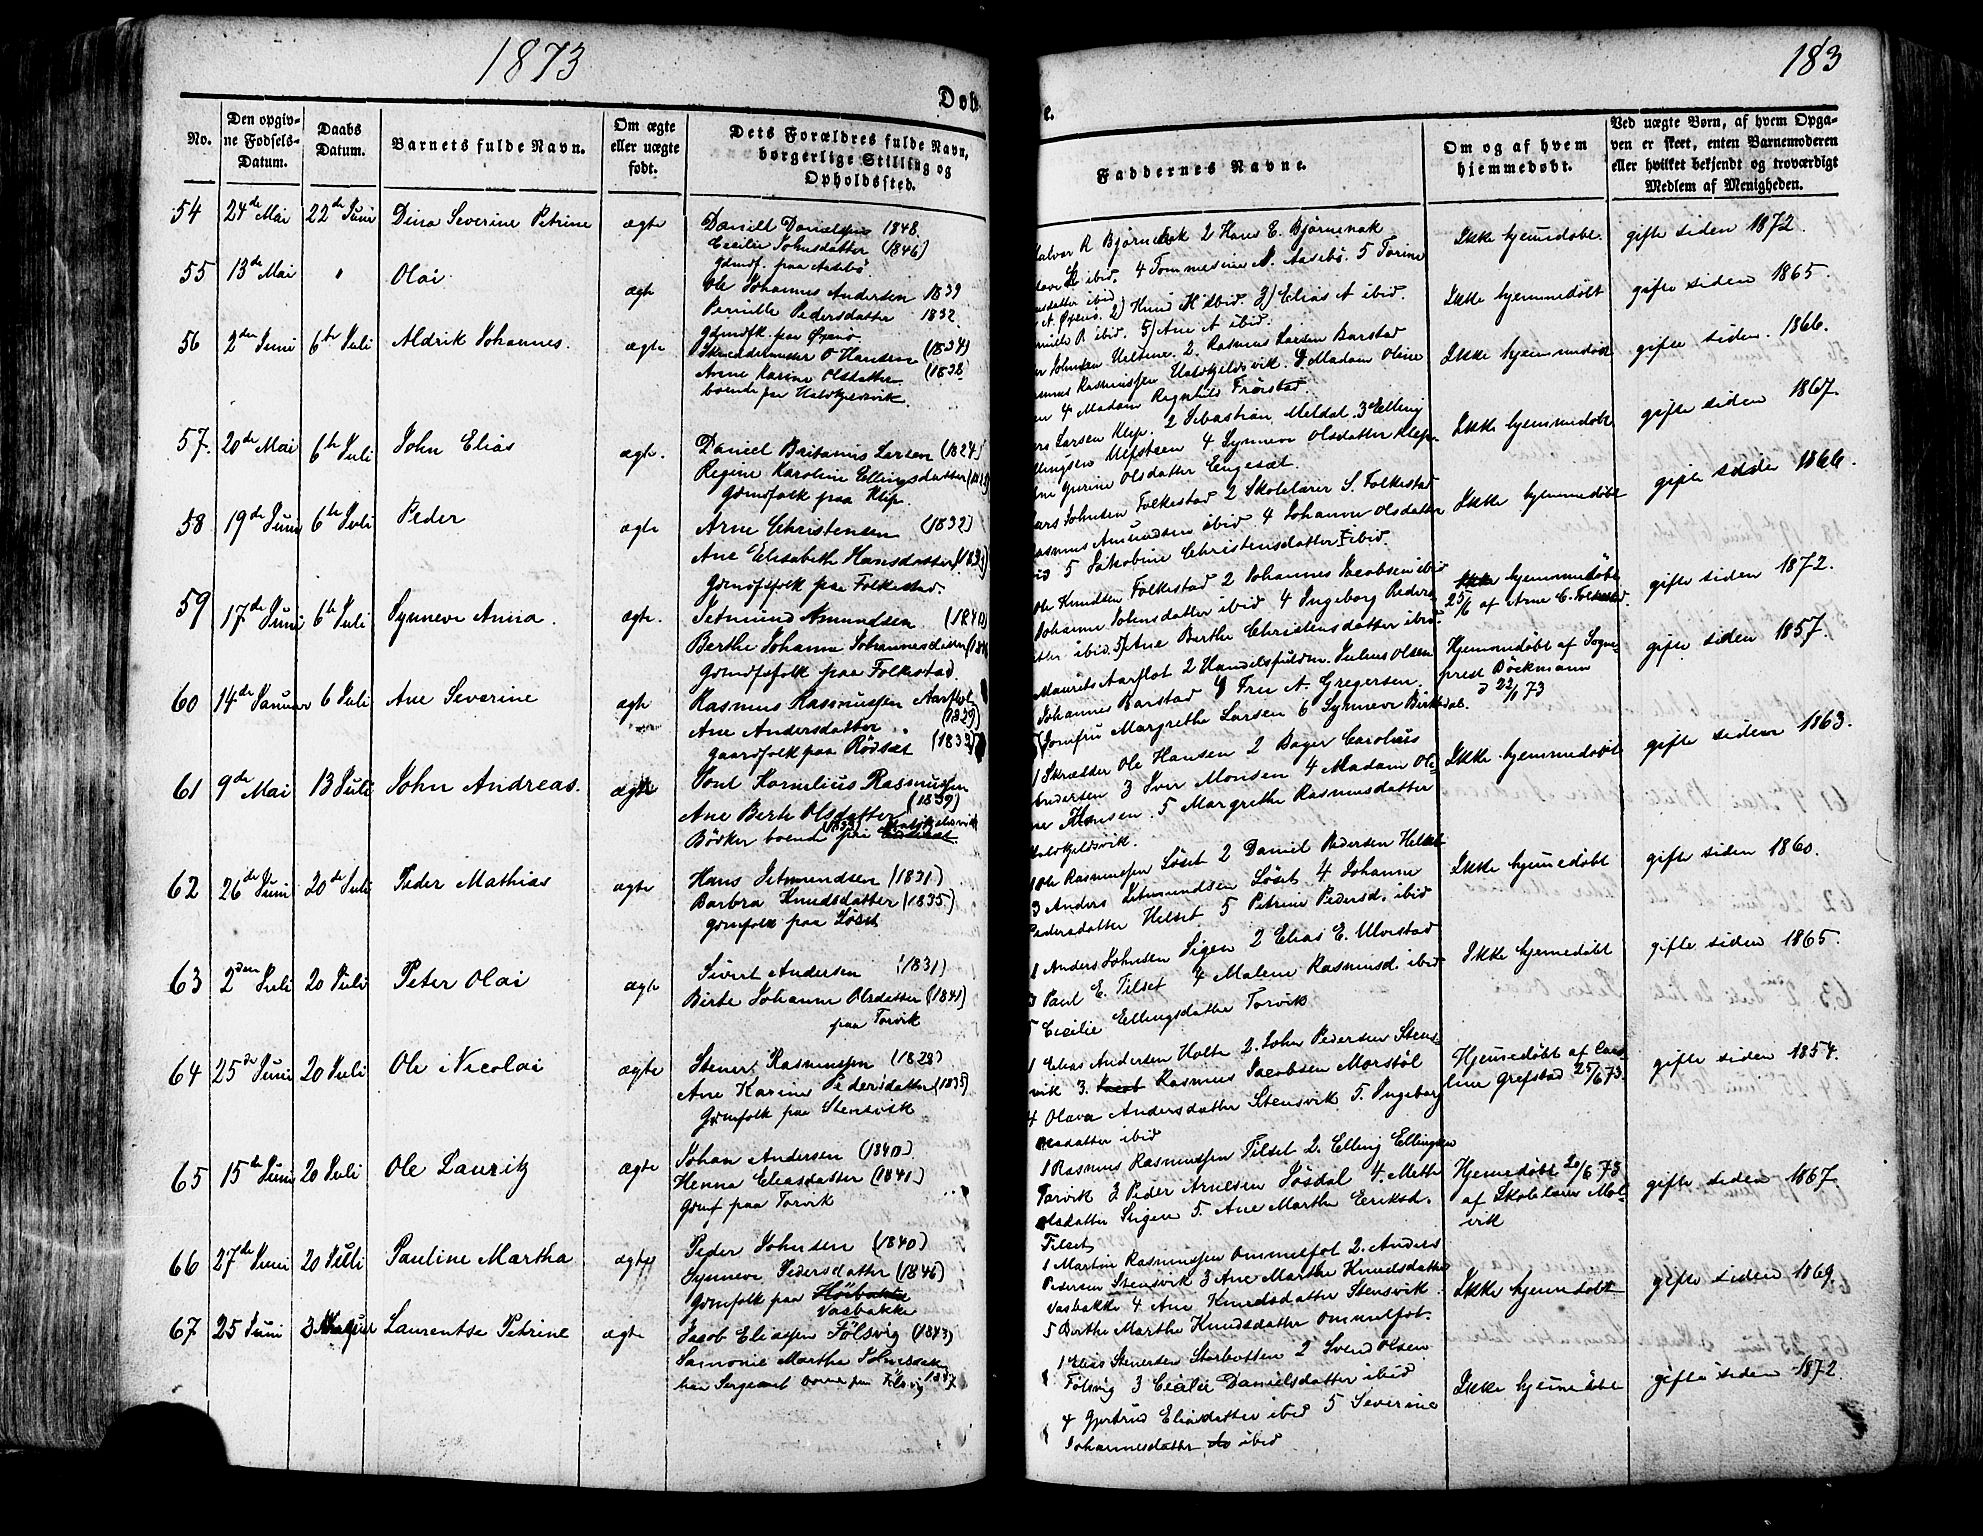 1873
183
Døb
No.
Den opgiv-
ne Fødsels-
Datum.
Daabs
Datum.
Barnets fulde Navn.
Om ægte
eller uægte
født.
Dets Forældres fulde Navn,
borgerlige Stilling og
Opholdssted.
Faddernes Navne.
Om og af hvem
hjemmedøbt.
Ved uægte Børn, af hvem Opga-
ven er skeet, enten Barnemoderen
eller hvilket bekjendt og troværdigt
Medlem af Menigheden.
54 24de Mai 22de Juni Dina Severine Petrine ægte
Daniel Danielsen 1848.
Cecilie Johnsdatter (1846)
Gdmdf. paa Aasebø.
Halvor R Bjørneeak 2 Hans E. Bjørneeak
ibid. 4 Tommesine A. Aasebø. 5 Torine
Ikke hjemmedøbt. gifte siden 1872.
55 13de Mai " Olai ægte
Ole Johannes Andersen 1839
Pernille Pedersdatter 1832.
Gdmdfk. paa Øxenö
datter ibid
A. Øxenö. 2) Knud H ibid. 3) Elias A ibid.
nille R ibid. 5) Ane A ibid.
Ikke hjemmedøbt gifte siden 1865.
56 2den Juni 6te Juli Aldrik Johannes. ægte
O Hansen (1834)
Anne Karine Olsdatter (1838
boende paa Volskjeldsvik.
Johnsen Helsene. 2. Rasmus Larsen Barstad
Rasmussen Volskjeldsvik. Madam Oline
4 Madam Regnhild Frøistad
Ikke hjemmedøbt gifte siden. 1866.
57. 20de Mai 6te Juli John Elias ægte.
Daniel Britanus Larsen (1824)
Regine Karoline Ellingsdatter
Gdmdfolk paa Klep.
Larsen Klep. 2 Sebastian Meldal. 3 Elling
Ellingsen Ulfsteen 4 Synneve Olsdatter Klep.
Gurine Olsdatter Engesæt.
Ikke hjemmedøbt gifte siden 1867.
58 19de Juni 6te Juli Peder ægte
Arne Christensen (1832)
Ane Elisabeth Hansdatter
Gdmdfolk paa Folkestad.
Lars Johnsen Folkestad 2 Skolelærer S. Folkestad
Rasmus Amundsen ibid 4 Johanne Olsdatter
ibid 5 Jakobine Christensdatter ibid.
Ikke hjemmedøbt gifte siden 1866.
59 17de Juni 6te Juli Synneve Anna. ægte.
Setmund Amundsen (1840)
Berthe Johanne Johannesdatter
Gdmdfolk paa Folkestad.
Ole Knudsen Folkestad 2 Johannes Jacobsen ibid
Johanne Johnsdatter ibid 4 Ingeborg Peders
datter ibid. 5) Ane Berthe Christensdatter ibid.
Ikke hjemmedøbt
25/6 af Arne C. Folkestad. gifte siden 1872.
60 14de Januar 6 Juli Ane Severine ægte
Rasmus Rasmussen Aarflot
(1829)
Ane Andersdatter.
Gaardfolk paa Rødsæt (1833)
Maurits Aarflot 2 Handelsfuldm. Julius Olsen
Johannes Barstad Fru A. Gregersen.
Jomfru Margrethe Larsen 6 Synneve Birkedal.
Hjemmedøbt af Sogne-
prest Böckmann
d 22/1 73 gifte siden 1857.
61 9de Mai 13 Juli John Andreas. ægte
Kornelius Rasmussen
(1839)
Ane Berte Olsdatter
Bødker boende paa
1 Skrædder Ole Hansen 2 Bager Carolius
Andersen 3 Iver Monsen 4 Madam Oli-
ne Hansen. 5 Margrethe Rasmusdatter
Volskjeldsvik.
Ikke hjemmedøbt gifte siden 1863.
62 26de Juni 20de Juli Peder Mathias ægte
Hans Setmundsen (1831)
Barbra Knudsdatter (1835)
Gdmfolk paa Løset
1 Ole Rasmussen Løset 2 Daniel Pedersen Helset
3 Anders Setmundsen Løset 4 Johanne
Pedersdatter Helset 5 Petrine Pedersd. ibid
Ikke hjemmedøbt gifte siden 1860.
63 2den Juli 20 Juli Peter Olai ægte
Sivert Andersen (1831)
Birte Johanne Olsdatter (1841)
paa Torvik
1 Anders Johnsen Sigen 2 Elias E. Morstad
3 Paul E. Tilset 4 Malene Rasmusd. ibid
5 Cecilie Ellingsdatter Torvik
Ikke hjemmedøbt gifte siden 1865.
64 25de Juni 20 Juli Ole Nicolai ægte
Stener Rasmussen (1828)
Ane Karine Pedersdatter (1835)
Gdmfolk paa Stensvik
1 Elias Andersen Holte 2. John Pedersen Stens-
vik 3. Jacob Rasmus Jacobsen Morstøl
4 Olava Andersdatter Stensvik 5. Ingeborg
Olsdatter ibid
Hjemmedøbt af Caro-
line Grefstad 25/6 73. gifte siden 1854.
65 15de Juni 20 Juli Ole Lauritz ægte
Johan Andersen (1840).
Henna Eliasdatter (1841)
Gdmf paa Torvik
1 Rasmus Rasmussen Tilset 2. Elling Ellingsen
Torvik 3 Peder Arnesen Jøsdal 4. Mette
Olsdatter Sigen 5. Ane Marthe Eriksd.
Tilset
Hjemmedøbt 20/6 73
af Skolelærer Mol-
vik gifte siden 1867.
66 27de Juni 20 Juli Pauline Martha ægte
Peder Johnsen (1840)
Synneve Pedersdatter (1846)
Gdmfolk paa
Vasbakke
1 Martin Rasmussen Ommelfot 2. Anders
Pedersen Stensvik 3 Ane Marthe Knudsdatter
Vasbakke 4 Ane Knudsdatter Stensvik.
5 Berthe Marthe Knudsdatter Ommelfot.
Ikke hjemmedøbt gifte siden 1869.
67 25 Juni 3 August Laurentse Petrine ægte
Jacob Eliassen Fölsvig (1843)
Samonie Marthe
Sergeant boende paa Fölsvig 1847
1 Elias Stenersen Storbotten 2 Svend Olsen
Følsvig 3 Cecilie Danielsdatter ibid
4 Gjertrud Eliasdatter ibid 5 Severine
Johannesdatter do ibid
Ikke hjemmedøbt gifte siden 1872.